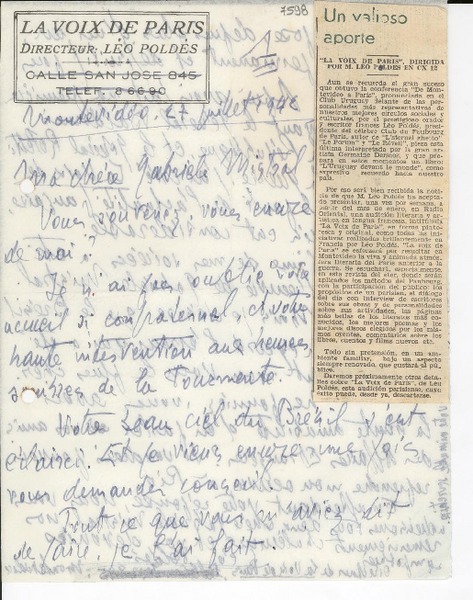 7598
LA VOIX DE PARIS
DIRECTEUR: LÉO POLDÈS
CALLE SAN JOSE 845
TELEF. 8 66 90
Montevideo 27 juillet 1946
Ma chère Gabriela Mistral
Vous souvient-il encore
de moi
Je n'ai pas oublié votre
accueil si fraternel, et votre
haute intervention aux heures
de la Tourmente
Votre beau ciel du Brésil s'est
éclairci. Et je viens encore une fois
vous demander conseil.
Tout ce que vous m'aviez dit
de faire, je l'ai fait.
Un valioso
aporte
"LA VOIX DE PARIS", DIRIGIDA
POR M. LEO POLDES EN CX 12
Aun se recuerda el gran suceso
que obtuvo la conferencia "De Mon-
tevideo a Paris", pronunciada en el
Club Uruguay delante de las perso-
nalidades más representativas de
nuestros mejores círculos sociales y
culturales, por el prestigioso orador
y escritor francés Léo Poldès, presi-
dente del célebre Club du Faubourg
de Paris, autor de "L'éternel Ghetto"
"Le Forum" y "Le Réveil", pieza esta
última interpretada por la gran ar-
tista Germaine Dermoz, y que pre-
para en estos momentos un libro:
"L'Uruguay devant le monde", como
expresivo recuerdo hacia nuestro
país.
Por eso será bien recibida la noti-
cia de que M. Leo Poldès ha acep-
tado presentar, una vez por semana, a
partir del mes de enero, en Radio
Oriental, una audición literaria y ar-
tística en lengua francesa, intitulada
"La Voix de Paris", en forma pinto-
resca y original, como todas las ini-
ciativas realizadas brillantemente en
Francia por Léo Poldès. "La Voix de
Paris" se esforzará por resucitar en
Montevideo la viva y animada atmós-
fera literaria del Paris anterior a la
guerra. Se escuchará, especialmente,
en un revista del eter donde serán
aplicados los métodos del Faubourg,
con la participación del público: los
propósitos de un parisien, el diálogo
del día con interview de escritores
sobre sus obras y de personalidades
sobre sus actividades, las páginas
más bellas de los literatos más co-
nocidos, los mejores poemas y los
mejores discos elegidos por los mis-
mos oyentes, comentarios sobre los
libros, cuentos y films nuevos etc.
Todo sin pretensión, en un am-
biente familiar, bajo un aspecto
siempre renovado, que gustará al pú-
blico.
Daremos próximamente otros deta-
lles sobre "La Voix de Paris", de Léo
Poldès, esta audición parisiense, cuyo
éxito puede, desde ya, descartarse.